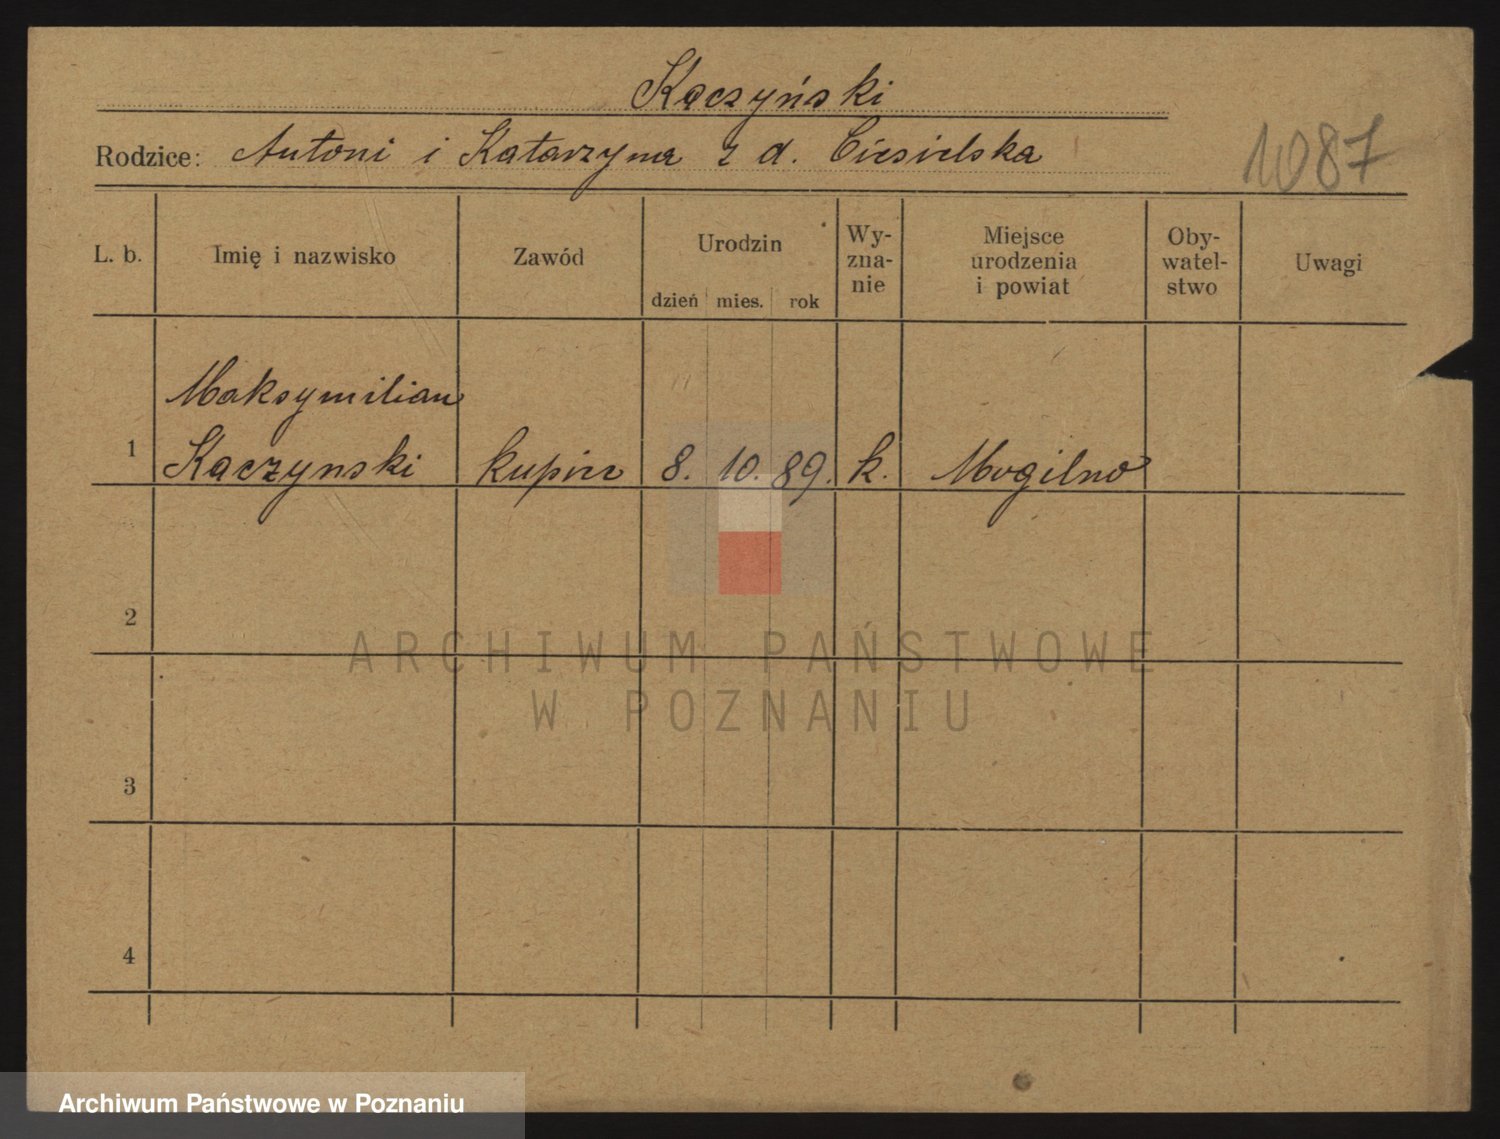 Kączyński
Rodzice: Antoni i Katarzyna z d. Ciesielska
1087
L. b.
Imię i nazwisko
Zawód
Urodzin
dzień mies. rok
Wy-
zna-
nie
Miejsce
urodzenia
i powiat
Oby-
watel-
stwo
Uwagi
Maksymilian
1 Kączynski kupiec 8. 10. 89. k. Mogilno
2
3
4
ARCHIWUM PAŃSTWOWE
W POZNANIU
Archiwum Państwowe w Poznaniu